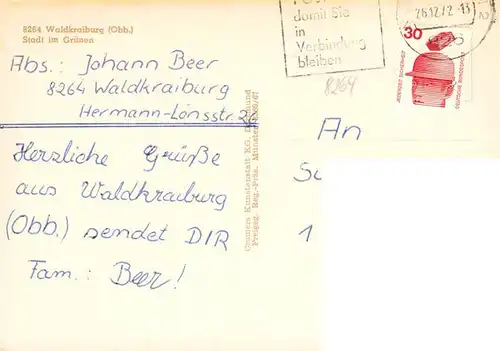 8264 Waldkraiburg (Obb.)
Stadt im Grünen
Abs.: Johann Beer
8264 Waldkraiburg
Hermann-Lönsstr.
Herzliche Grüße
aus Waldkraiburg
(Obb.) sendet DIR
Fam.: Beer!
Cramers Kunstanstalt KG, Dortmund
Freigeg. Reg.-Präs. Münster
damit Sie
in
Verbindung
bleiben
8264
30
JEDERZEIT SICHERHEIT
DEUTSCHE BUNDESPOST
An
1